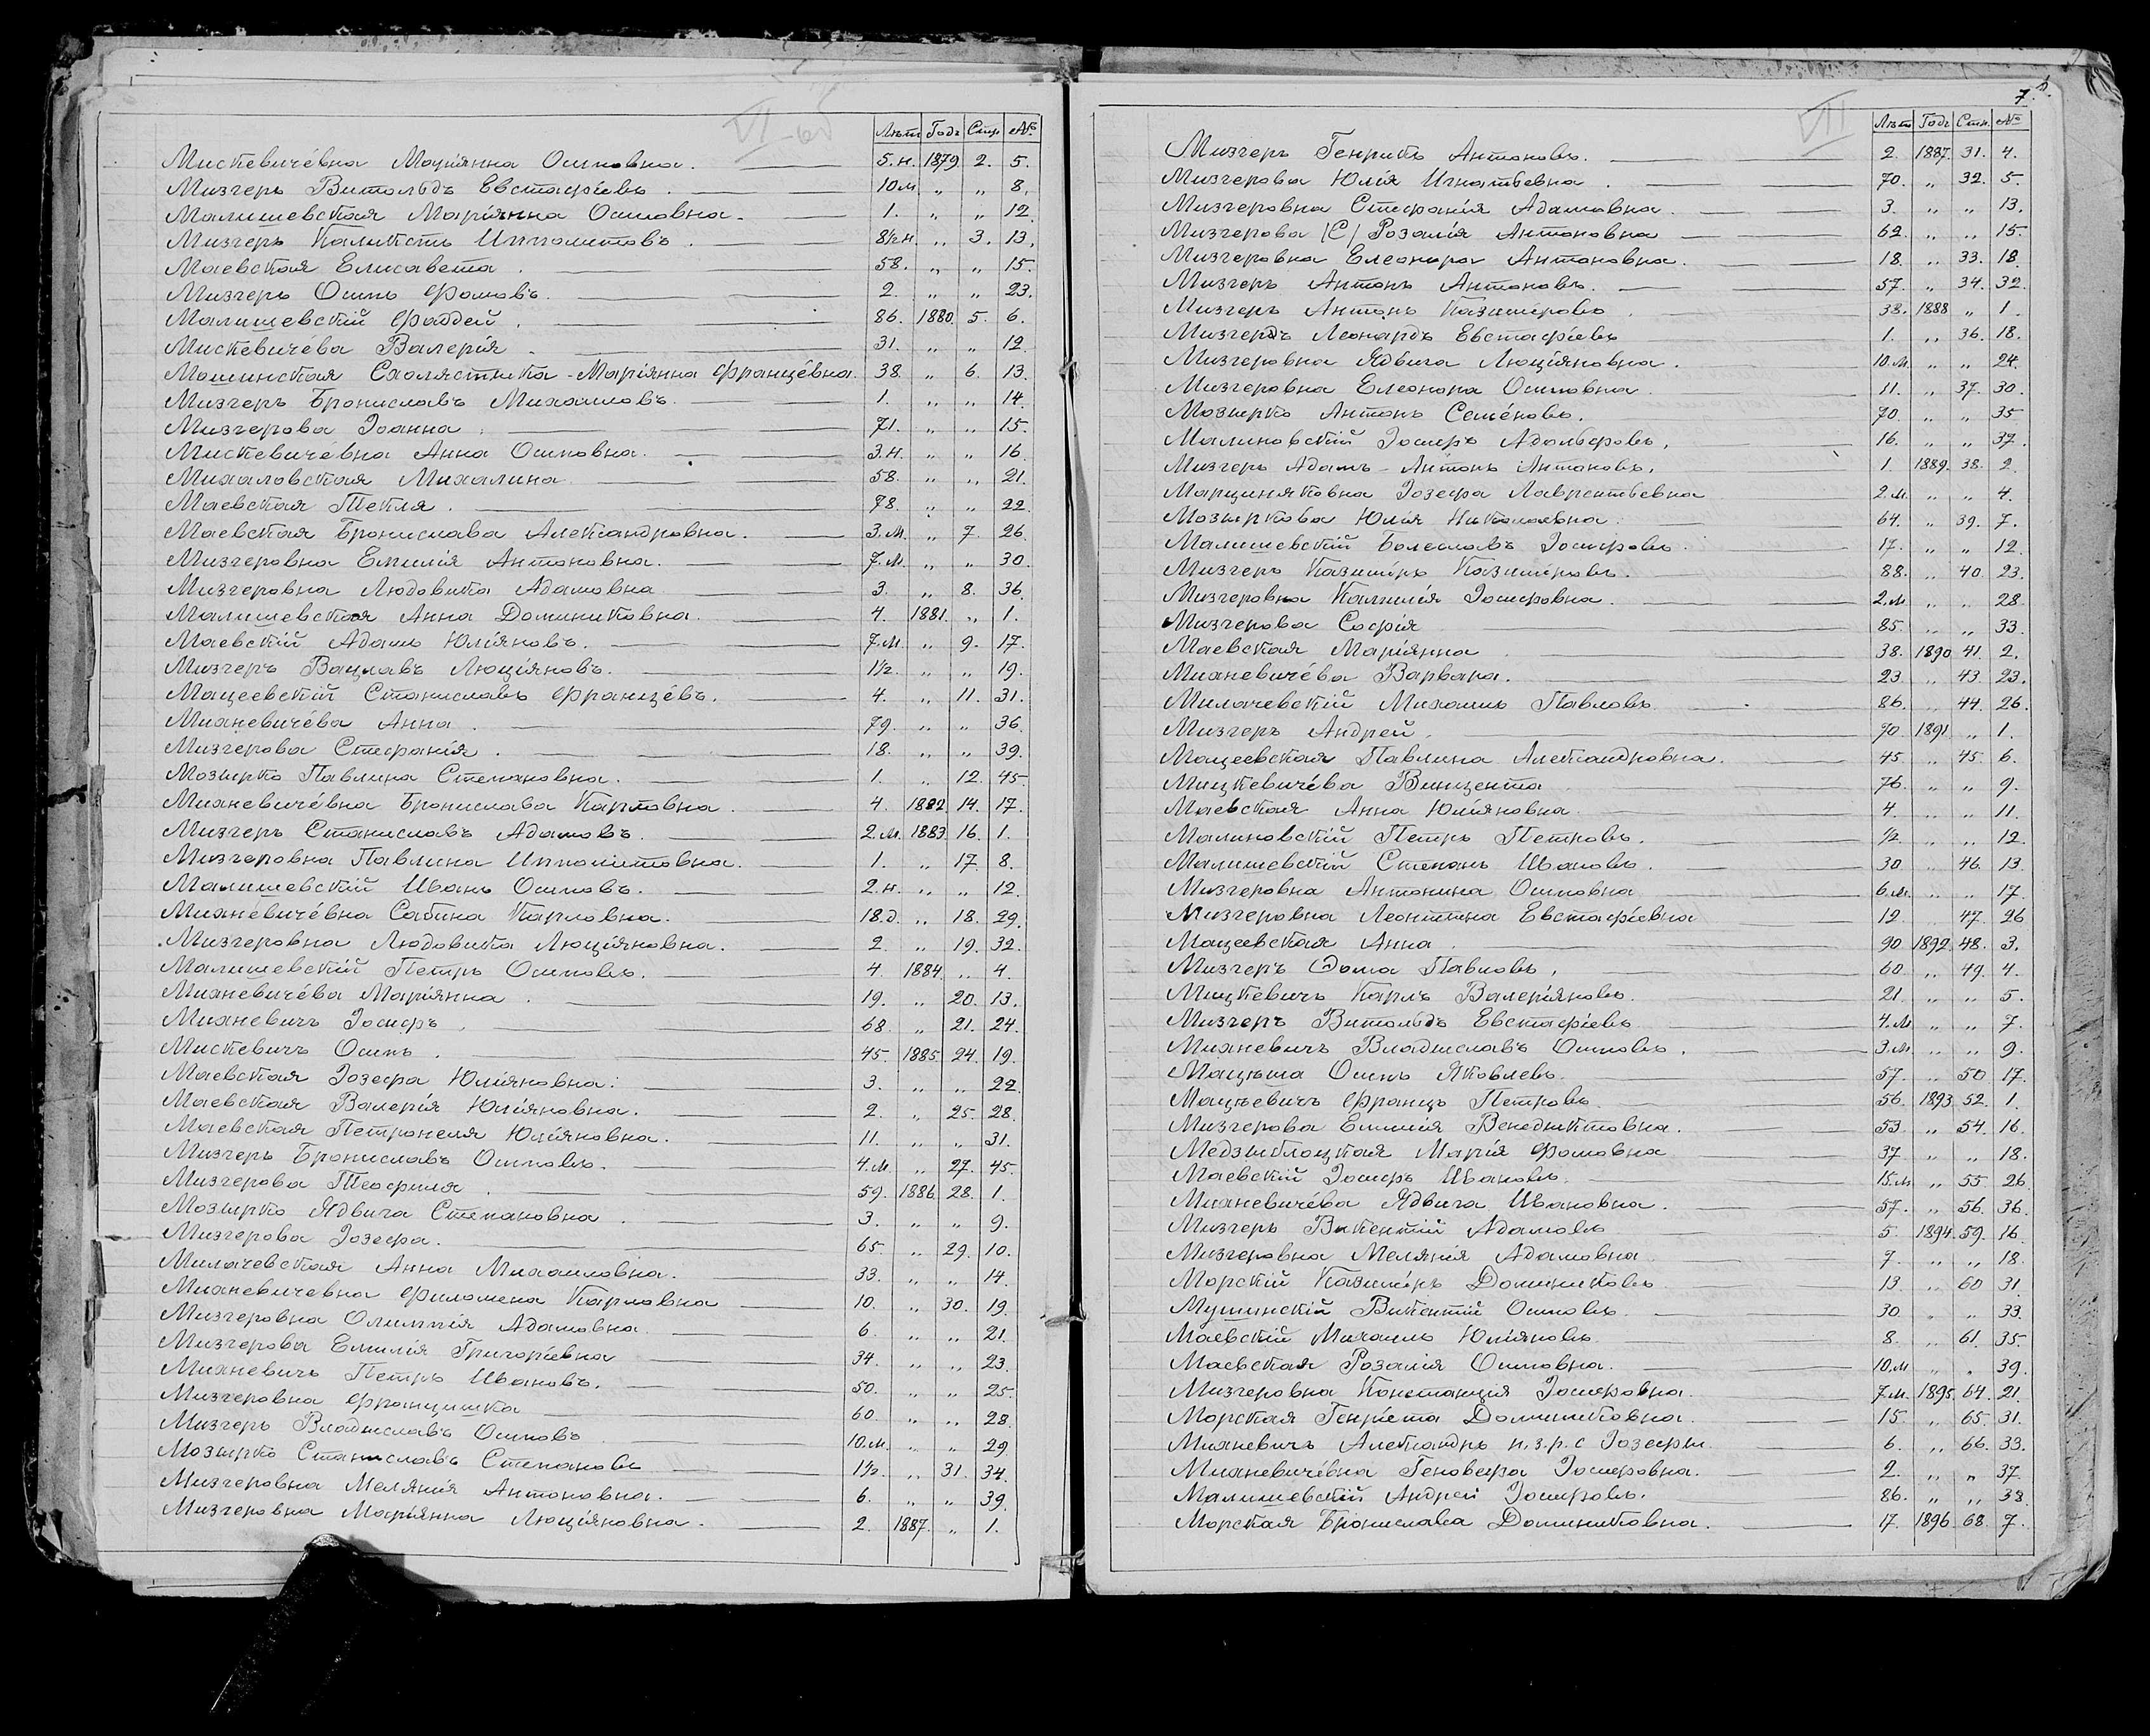 VI об
Лѣт. Годъ Стр. №
Мискевиче́вна Маріянна Осиповна. 5.н. 1879 2. 5.
Мизгеръ Витольдъ Евстафіевъ. 10м. „ „ 8.
Малишевская Маріянна Осиповна. 1. „ „ 12.
Мизгеръ Каликстъ Ипполитовъ. 8½н „ 3. 13.
Маевская Елисавета. 58. „ „ 15.
Мизгеръ Осипъ Фомовъ. 2. „ „ 23.
Малишевскій Фаддей. 86. 1880. 5. 6.
Мискевиче́ва Валерія. 31. „ „ 12.
Мошинская Схолястика-Маріянна Францёвна. 38. „ 6. 13.
Мизгеръ Брониславъ Михаиловъ. 1. „ „ 14.
Мизгерова Іоанна. 71. „ „ 15.
Мискевиче́вна Анна Осиповна. 3.н. „ „ 16.
Михаловская Михалина 58. „ „ 21.
Маевская Текля. 78. „ „ 22.
Маевская Бронислава Александровна. 3.м. „ 7. 26.
Мизгеровна Емилія Антоновна. 7.м. „ „ 30.
Мизгеровна Людовика Адамовна 3. „ 8. 36.
Малишевская Анна Доминиковна. 4. 1881. „ 1.
Маевскій Адамъ Юліяновъ. 7.м. „ 9. 17.
Мизгеръ Вацлавъ Люціяновъ. 1½. „ „ 19.
Мацеевскій Станиславъ Францёвъ. 4. „ 11. 31.
Миханевиче́ва Анна. 79. „ „ 36.
Мизгерова Стефанія. 18. „ „ 39.
Мозырко Павлина Степановна. 1. „ 12. 45.
Миханевиче́вна Бронислава Карловна. 4. 1882. 14. 17.
Мизгеръ Станиславъ Адамовъ. 2.м. 1883. 16. 1.
Мизгеровна Павлина Ипполитовна. 1. „ 17. 8.
Малишевскій Иванъ Осиповъ. 2.н. „ „ 12.
Миханевиче́вна Сабина Карловна. 18.д. „ 18. 29.
Мизгеровна Людовика Люціяновна. 2. „ 19. 32.
Малишевскій Петръ Осиповъ. 4. 1884. „ 4.
Миханевиче́ва Маріянна. 19. „ 20. 13.
Миханевичъ Іосифъ. 68. „ 21. 24.
Мискевичъ Осипъ. 45. 1885 24. 19.
Маевская Іозефа Юліяновна. 3. „ „ 22.
Маевская Валерія Юліяновна. 2. „ 25. 28.
Маевская Петронеля Юліяновна. 11. „ „ 31.
Мизгеръ Брониславъ Осиповъ. 4.м. „ 27. 45.
Мизгерова Теофиля. 59. 1886. 28. 1.
Мозырко Ядвига Степановна. 3. „ „ 9.
Мизгерова Іозефа. 65 „ 29. 10.
Милачевская Анна Михаиловна. 33. „ „ 14.
Миханевичевна Филомена Карловна 10. „ 30. 19.
Мизгеровна Олимпія Адамовна. 6. „ „ 21.
Мизгерова Емилія Григоріевна 34. „ „ 23.
Миханевичъ Петръ Ивановъ. 50. „ „ 25.
Мизгеровна Францишка 60. „ „ 28.
Мизгеръ Владиславъ Осиповъ 10.м. „ „ 29.
Мозырко Станиславъ Степановъ 1½. „ 31. 34.
Мизгеровна Мелянія Антоновна. 6. „ „ 39.
Мизгеровна Маріянна Люціяновна. 2. 1887. „ 1.
VII
7.
Лѣт. Годъ Стр. №
Мизгеръ Генрикъ Антоновъ. 2. 1887. 31. 4.
Мизгерова Юлія Игнатьевна. 70. „ 32. 5.
Мизгеровна Стефанія Адамовна. 3. „ „ 13.
Мизгерова /С/ Розалія Антоновна 62. „ „ 15.
Мизгеровна Елеонора Антоновна. 18. „ 33. 18.
Мизгеръ Антонъ Антоновъ. 57. „ 34. 32.
Мизгеръ Антонъ Казиміровъ. 38. 1888 „ 1.
Мизгеръ Леонардъ Евстафіевъ 1. „ 36. 18.
Мизгеровна Ядвига Люціяновна. 10.м. „ „ 24.
Мизгеровна Елеонора Осиповна. 11. „ 37. 30.
Мозырко Антонъ Семёновъ. 70. „ „ 35
Малиновскій Іосифъ Адольфовъ. 16. „ „ 37.
Мизгеръ Адамъ-Антонъ Антоновъ. 1. 1889. 38. 2.
Марциняковна Іозефа Лаврентьевна 2.м. „ „ 4.
Мозыркова Юлія Николаевна. 64. „ 39. 7.
Малишевскій Болеславъ Іосифовъ. 17. „ „ 12.
Мизгеръ Казиміръ Казиміровъ. 88. „ 40. 23.
Мизгеровна Камилія Іосифовна. 2.м. „ „ 28.
Мизгерова Софія 85. „ „ 33.
Маевская Маріянна. 38. 1890. 41. 2.
Миханевиче́ва Варвара. 23. „ 43. 23.
Милачевскій Михаилъ Павловъ. 86. „ 44. 26.
Мизгеръ Андрей. 70. 1891. „ 1.
Мацеевская Павлина Александровна. 45. „ 45. 6.
Мицкевиче́ва Винцента 76. „ „ 9.
Маевская Анна Юліяновна. 4. „ „ 11.
Малиновскій Петръ Петровъ. ½. „ „ 12.
Малишевскій Степанъ Ивановъ. 30 „ 46. 13.
Мизгеровна Антонина Осиповна 6.м. „ „ 17.
Мизгеровна Леонтина Евстафіевна 12. 47. 26
Мацеевская Анна. 90. 1892. 48. 3.
Мизгеръ Фома Павловъ. 60. „ 49. 4.
Мицкевичъ Карлъ Валеріяновъ. 21. „ „ 5.
Мизгеръ Витольдъ Евстафіевъ 4.м. „ „ 7.
Миханевичъ Владиславъ Осиповъ. 3.м. „ „ 9.
Осипъ Яковлевъ 57. „ 50. 17.
Мацѣевичъ Францъ Петровъ 56. 1893. 52. 1.
Мизгерова Емилія Венедиктовна. 53. „ 54. 16.
Медзиблоцкая Марія Фомовна 37 „ „ 18.
Маевскій Іосифъ Ивановъ. 15.м. „ 55. 26.
Миханевиче́ва Ядвига Ивановна. 57. „ 56. 36.
Мизгеръ Викентій Адамовъ 5. 1894. 59. 16.
Мизгеровна Мелянія Адамовна 7. „ „ 18.
Морскій Казиміръ Доминиковъ 13. „ 60 31.
Мушинскій Викентій Осиповъ. 30. „ „ 33.
Маевскій Михаилъ Юліяновъ 8. „ 61. 35.
Маевская Розалія Осиповна. 10.м. „ „ 39.
Мизгеровна Констанція Іосифовна. 7.м. 1895. 64. 21.
Морская Генріета Доминиковна. 15. „ 65. 31.
Миханевичъ Александръ н.з.р.с Іозефы. 6. „ 66. 33.
Миханевиче́вна Геновефа Іосифовна. 2. „ „ 37.
Малишевскій Андрей Іосифовъ. 86. „ „ 38.
Морская Бронислава Доминиковна. 17. 1896. 68. 7.